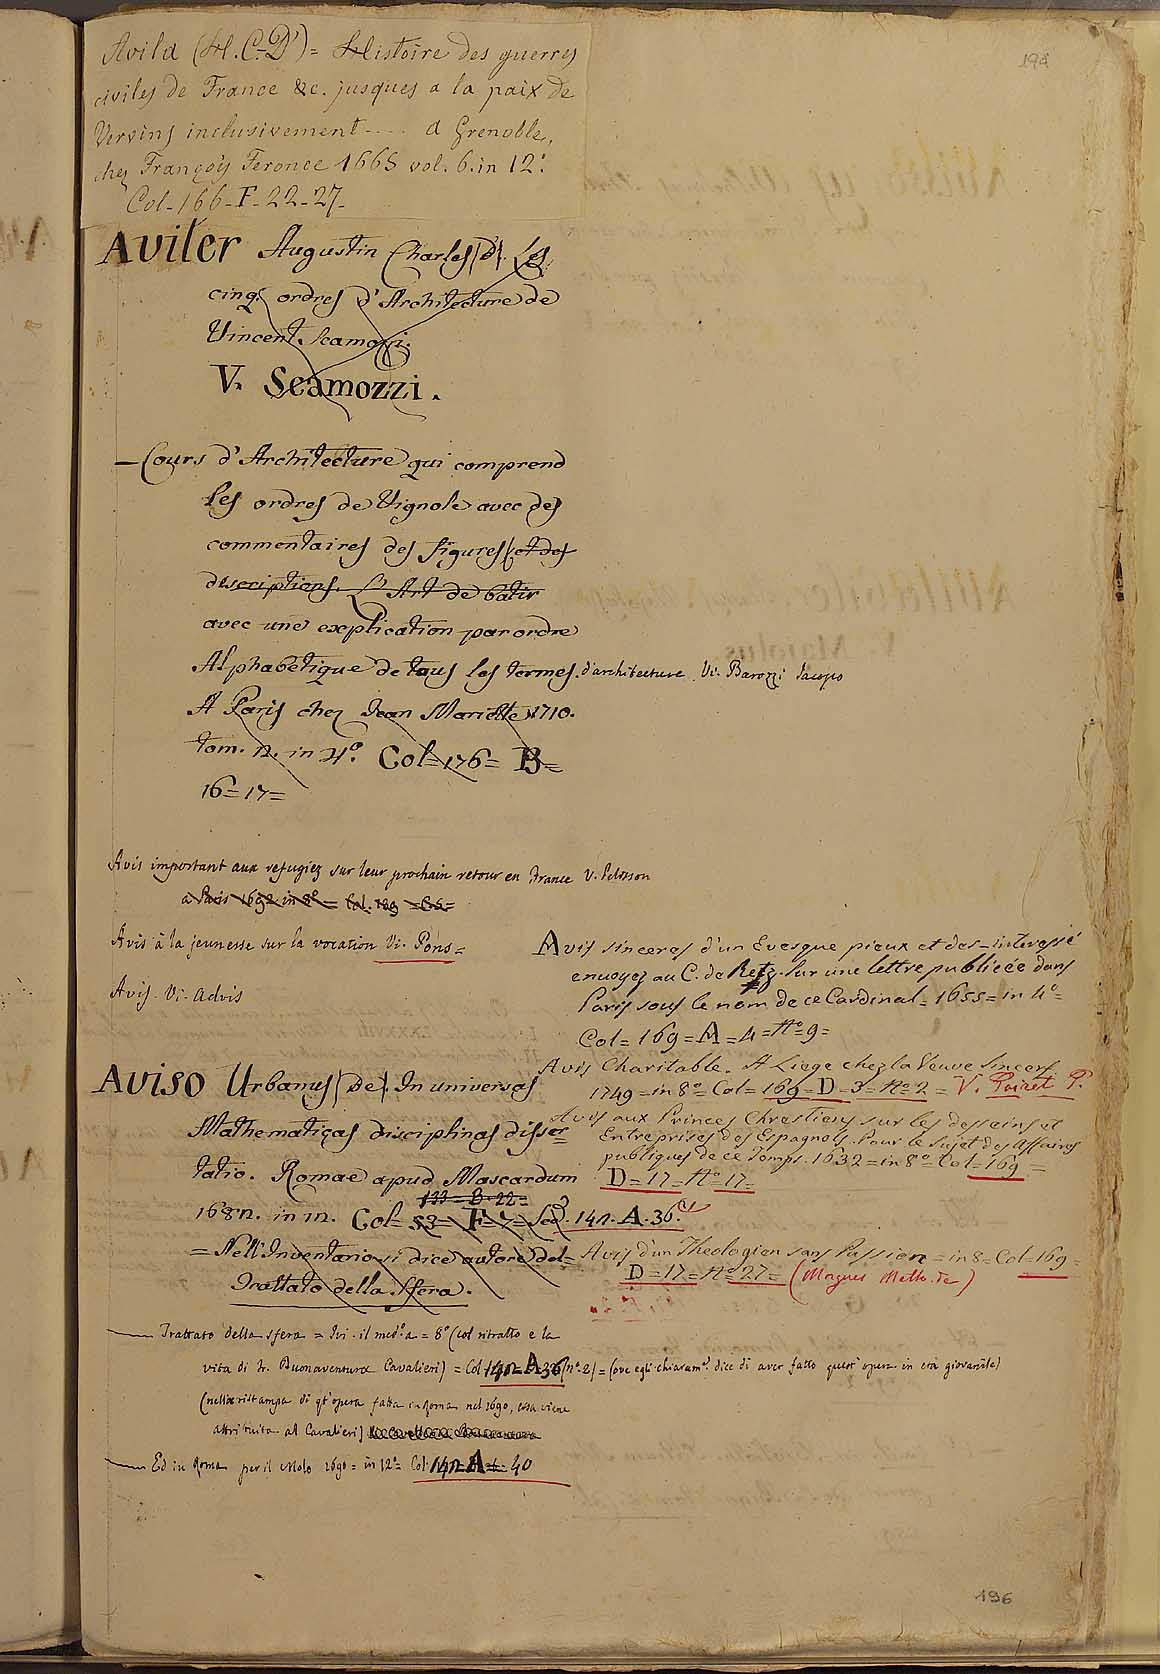 194
Avila (H. C. D') = Histoire des guerres
civiles de France &c. jusques a la paix de
Vervins inclusivement ---- a Grenoble,
chez François Feronce 1665 vol. 6. in 12°.
Col. 166 - F - 22 - 27 -
Aviler Augustin Charles (d'). Les
cinq ordres d'Architecture de
Vincent Scamozzi.
V. Scamozzi.
— Cours d'Architecture qui comprend
les ordres de Vignole avec des
commentaires des figures et des
descriptions. L'Art de bâtir
avec une explication par ordre
Alphabetique de tous les termes. d'architecture. Vi. Barozzi Jacopo
A Paris chez Jean Mariette 1710.
tom. 2. in 4°. Col = 176 = B =
16 = 17 =
Avis important aux refugiez sur leur prochain retour en France V. Pelisson
a Paris 1692 in 8° = Col. 189
Avis à la jeunesse sur la vocation Vi. Pons =
Avis. Vi. Advis
Avis sinceres d'un Evesque pieux et des-interessé
envoyez au C. de Retz. sur une lettre publiée dans
Paris sous le nom de ce Cardinal = 1655 = in 4° =
Col = 169 = A = 4 = N° 9 =
Avis Charitable. A Liege chez la Veuve Sincers
1749 = in 8° = Col = 169 = D - 3 = N° 2 = V. Poiret P.
Avis aux Princes Chrestiens sur les desseins et
Entreprises des Espagnols. Pour le sujet des Affaires
publiques de ce Temps. 1632 = in 8° = Col = 169 =
D = 17 = N° 17 =
Avis d'un Theologien sans Passion = in 8 = Col = 169 =
D = 17 = N° 27 = (Morgues Matt. de)
Aviso Urbanus (De). In universas
Mathematicas disciplinas disser
tatio. Romae apud Mascardum
133 = B = 22 =
1682. in 12. Col = 53 = F = 142. A. 36.
= Nell'Inventario si dice autore del
Trattato della Sfera.
— Trattato della sfera = Ivi. il med.° a = 8° (col ritratto e la
vita di Fr. Buonaventura Cavalieri) = Col 142 = A 36 (n°. 2) = (ove egli chiaram.e dice di aver fatto quest'opera in età giovanile)
(nella ristampa di qt'opera fatta in Roma nel 1690, essa viene
attribuita al Cavalieri)
— Ed in Roma per il Molo 1690 = in 12° = Col. 142 = A = 40
196